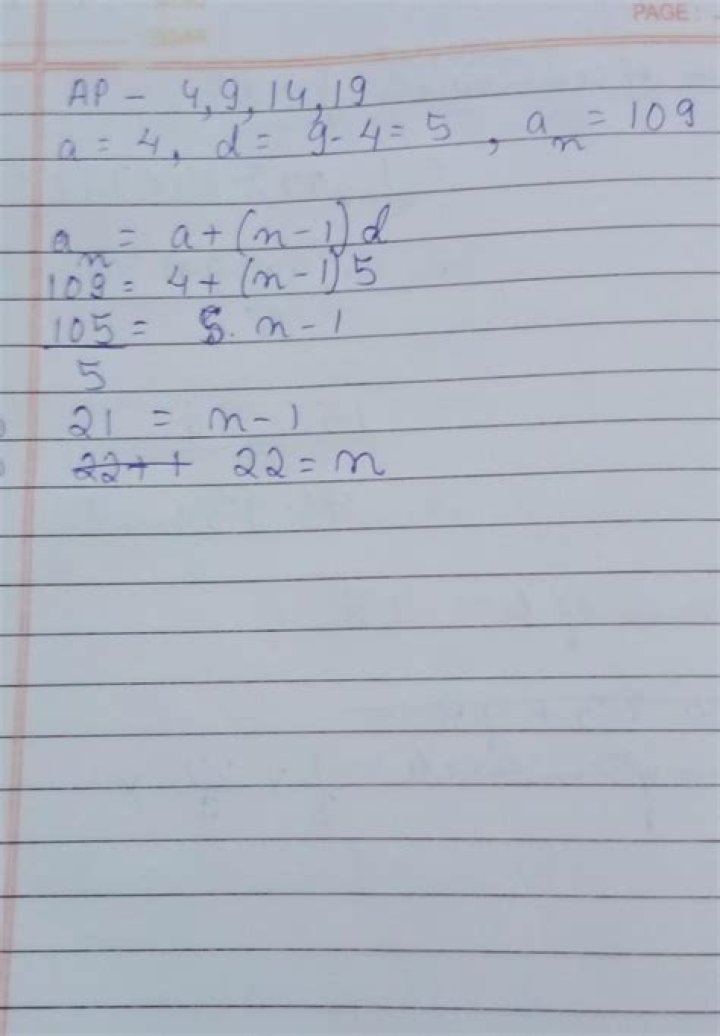 PAGE :
AP - 4, 9, 14, 19
a = 4, d = 9-4 = 5 , a_n = 109
a_n = a + (n-1) d
109 = 4 + (n-1) 5
105 = 5. n-1
5
21 = n-1
22+1 22 = n